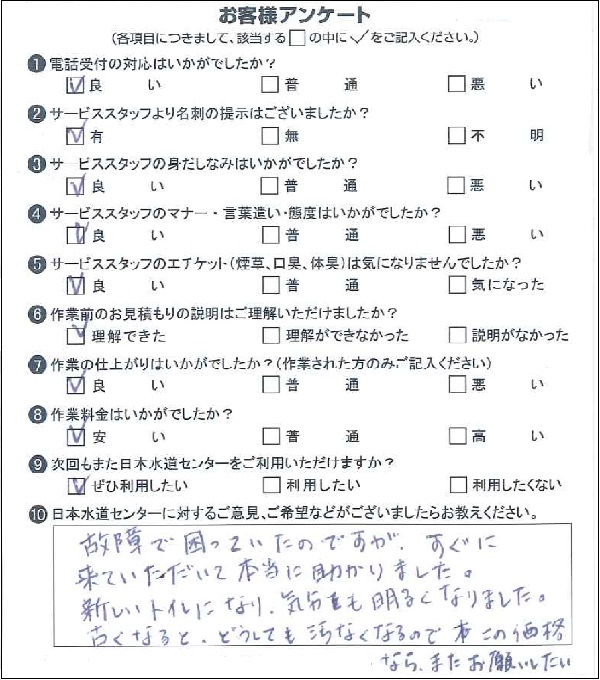 お客様アンケート
(各項目につきまして、該当する□の中に✓をご記入ください。)
❶電話受付の対応はいかがでしたか?
☑良い □普通 □悪い
❷サービススタッフより名刺の提示はございましたか?
☑有 □無 □不明
❸サービススタッフの身だしなみはいかがでしたか?
☑良い □普通 □悪い
❹サービススタッフのマナー・言葉遣い・態度はいかがでしたか?
☑良い □普通 □悪い
❺サービススタッフのエチケット(煙草、口臭、体臭)は気になりませんでしたか?
☑良い □普通 □気になった
❻作業前のお見積もりの説明はご理解いただけましたか?
☑理解できた □理解ができなかった □説明がなかった
❼作業の仕上がりはいかがでしたか?(作業された方のみご記入ください)
☑良い □普通 □悪い
❽作業料金はいかがでしたか?
☑安い □普通 □高い
❾次回もまた日本水道センターをご利用いただけますか?
☑ぜひ利用したい □利用したい □利用したくない
❿日本水道センターに対するご意見、ご希望などがございましたらお教えください。
故障で困っていたのですが、すぐに
来ていただいて本当に助かりました。
新しいトイレになり、気分も明るくなりました。
古くなると、どうしても汚なくなるので この価格
なら、またお願いしたい